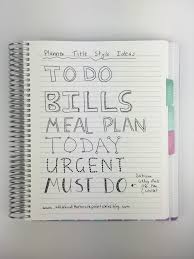 Planner Title Style Ideas
TO DO
BILLS
MEAL PLAN
TODAY
URGENT
MUST DO